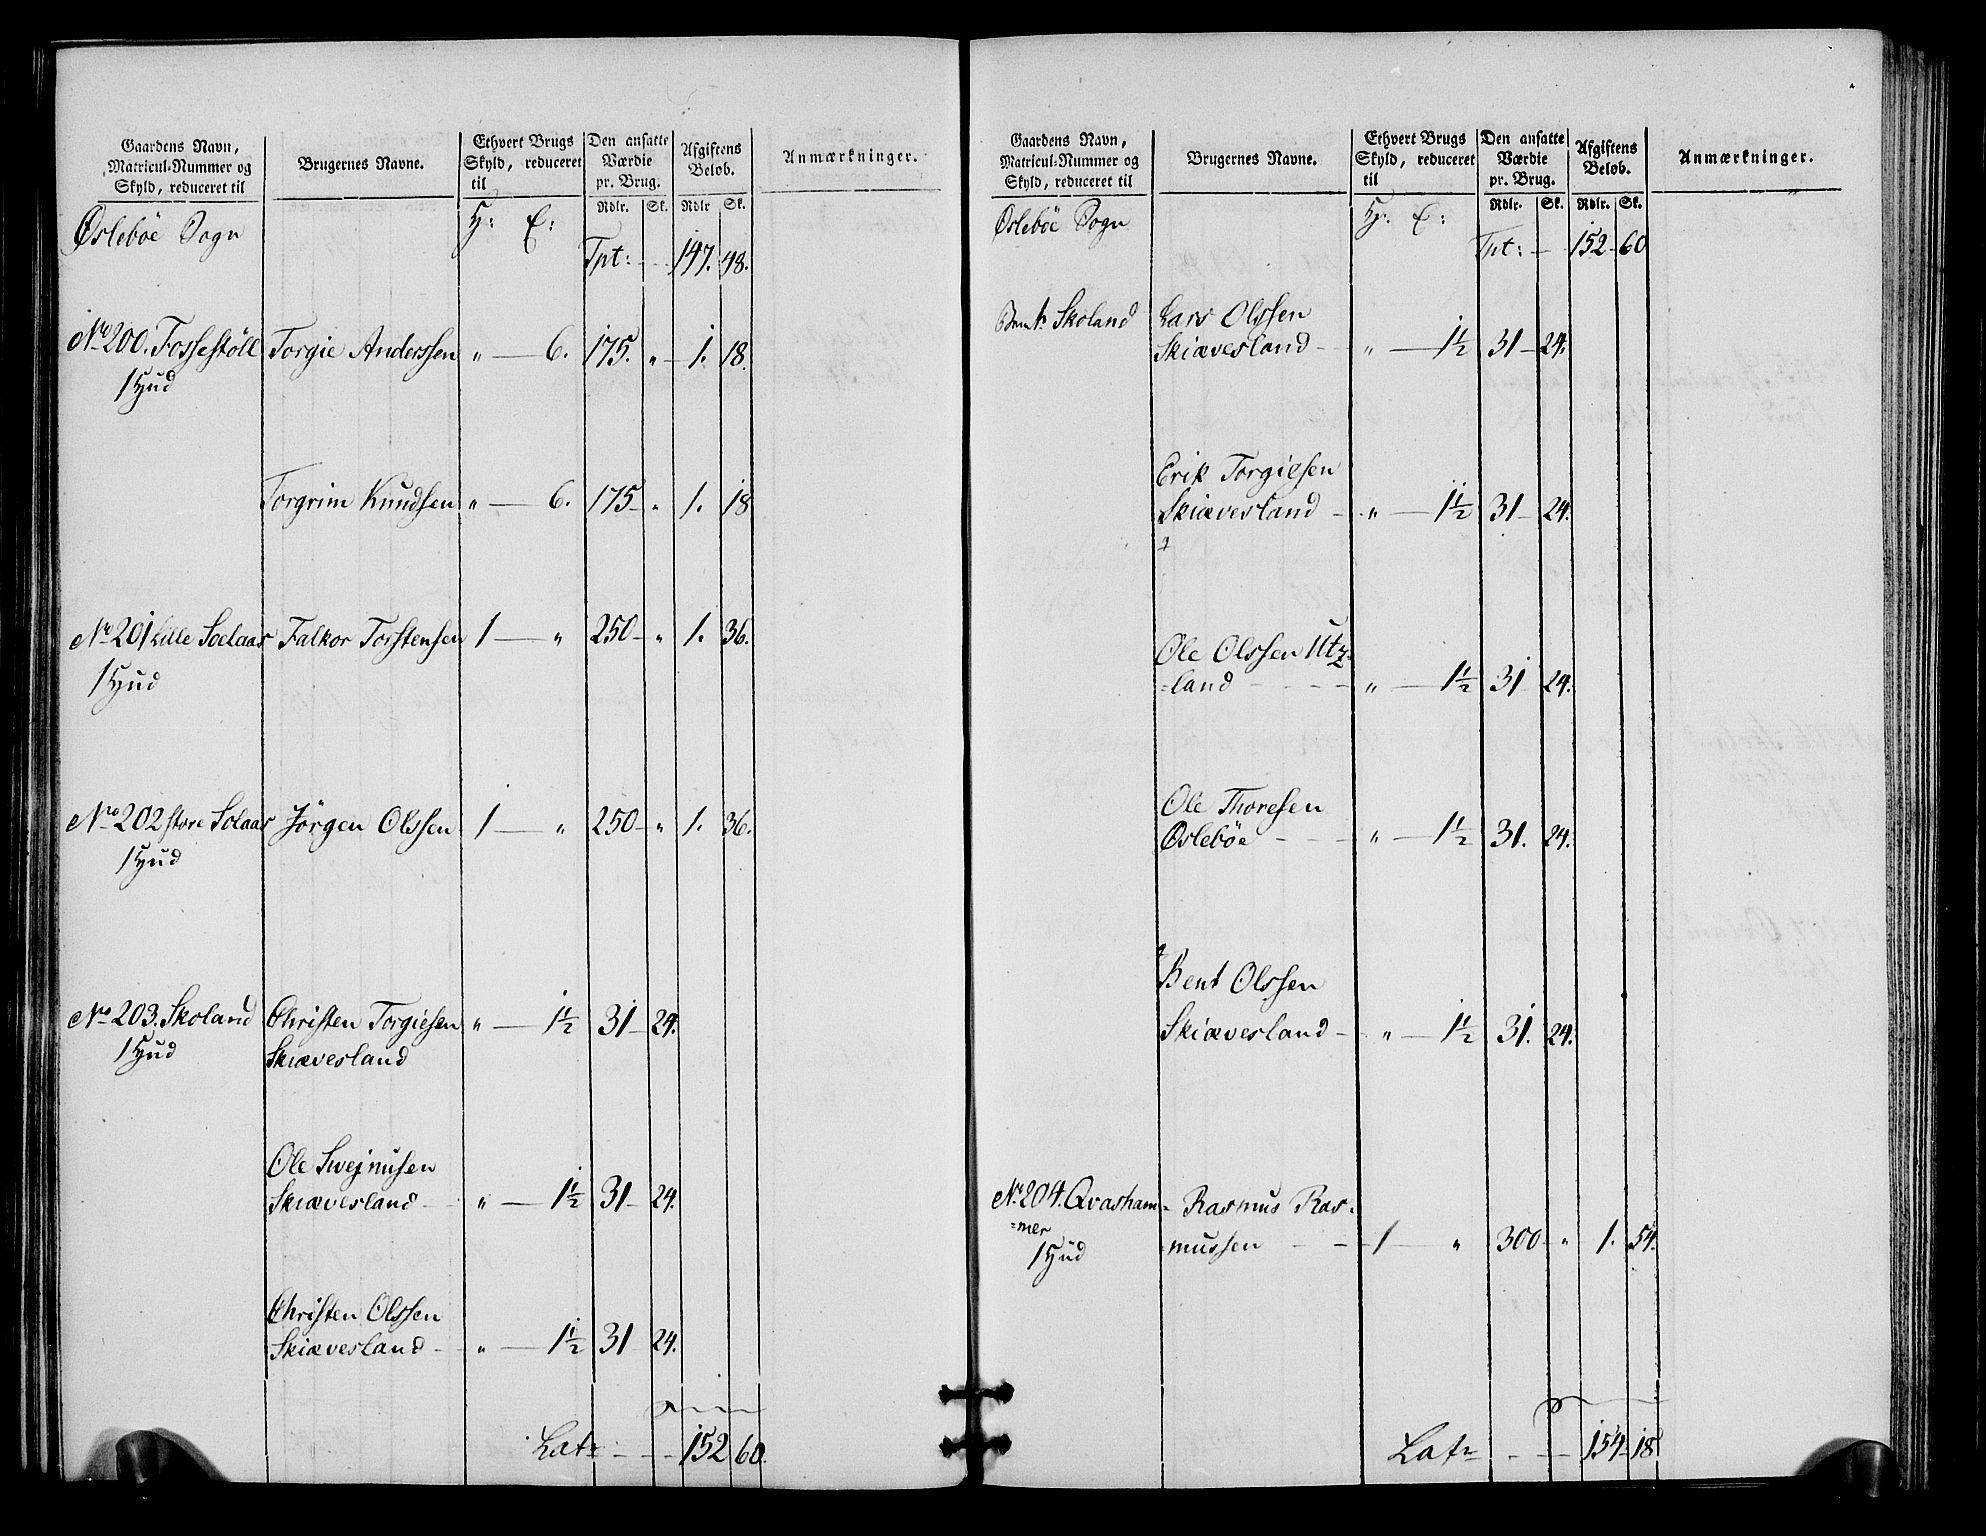 Gaardens Navn, Matricul-Nummer og Skyld, reduceret til | Brugernes Navne. | Ethvert Brugs Skyld, reduceret til | Den ansatte Værdie pr. Brug. | Afgiftens Beløb. | Anmærkninger.
Rdlr. Sk. Rdlr Sk.
Øslebøe Sogn H: E:
Tpt: 147. 48.
No 200. Fossestöll Torgie Anderssen " 6. 175. " 1. 18.
1 Hud
Torgrim Knudsen " 6. 175 " 1. 18
No 201 Lille Soelaas Falkor Torstensen 1 " 250 " 1. 36.
1 Hud
No 202 store Solaas Jörgen Olssen 1 " 250 " 1. 36.
1 Hud
No 203. Skoland Christen Torgiesen " 1½ 31 24.
1 Hud Skiævesland
Ole Swejnusen
Skiævesland " 1½ 31 24.
Christen Olssen
Skiævesland " 1½ 31 24.
Lats 152 60.
Gaardens Navn, Matricul-Nummer og Skyld, reduceret til | Brugernes Navne. | Ethvert Brugs Skyld, reduceret til | Den ansatte Værdie pr. Brug. | Afgiftens Beløb. | Anmærkninger.
Rdlr. Sk. Rdlr. Sk.
Øslebøe Sogn H: E:
Tpt: 152 60
Skoland Lars Olssen
Skiævesland " 1½ 31 24.
Erik Torgiesen
Skiævesland " 1½ 31 24.
Ole Olssen Utz=
=land " 1½ 31 24.
Ole Thoresen
Øslebøe " 1½ 31. 24.
Bent Olssen
Skiævesland " 1½ 31. 24.
No 204. Qvasham= Rasmus Ras=
=mer =mussen 1 " 300 " 1. 54.
1 Hud
Lats 154 18